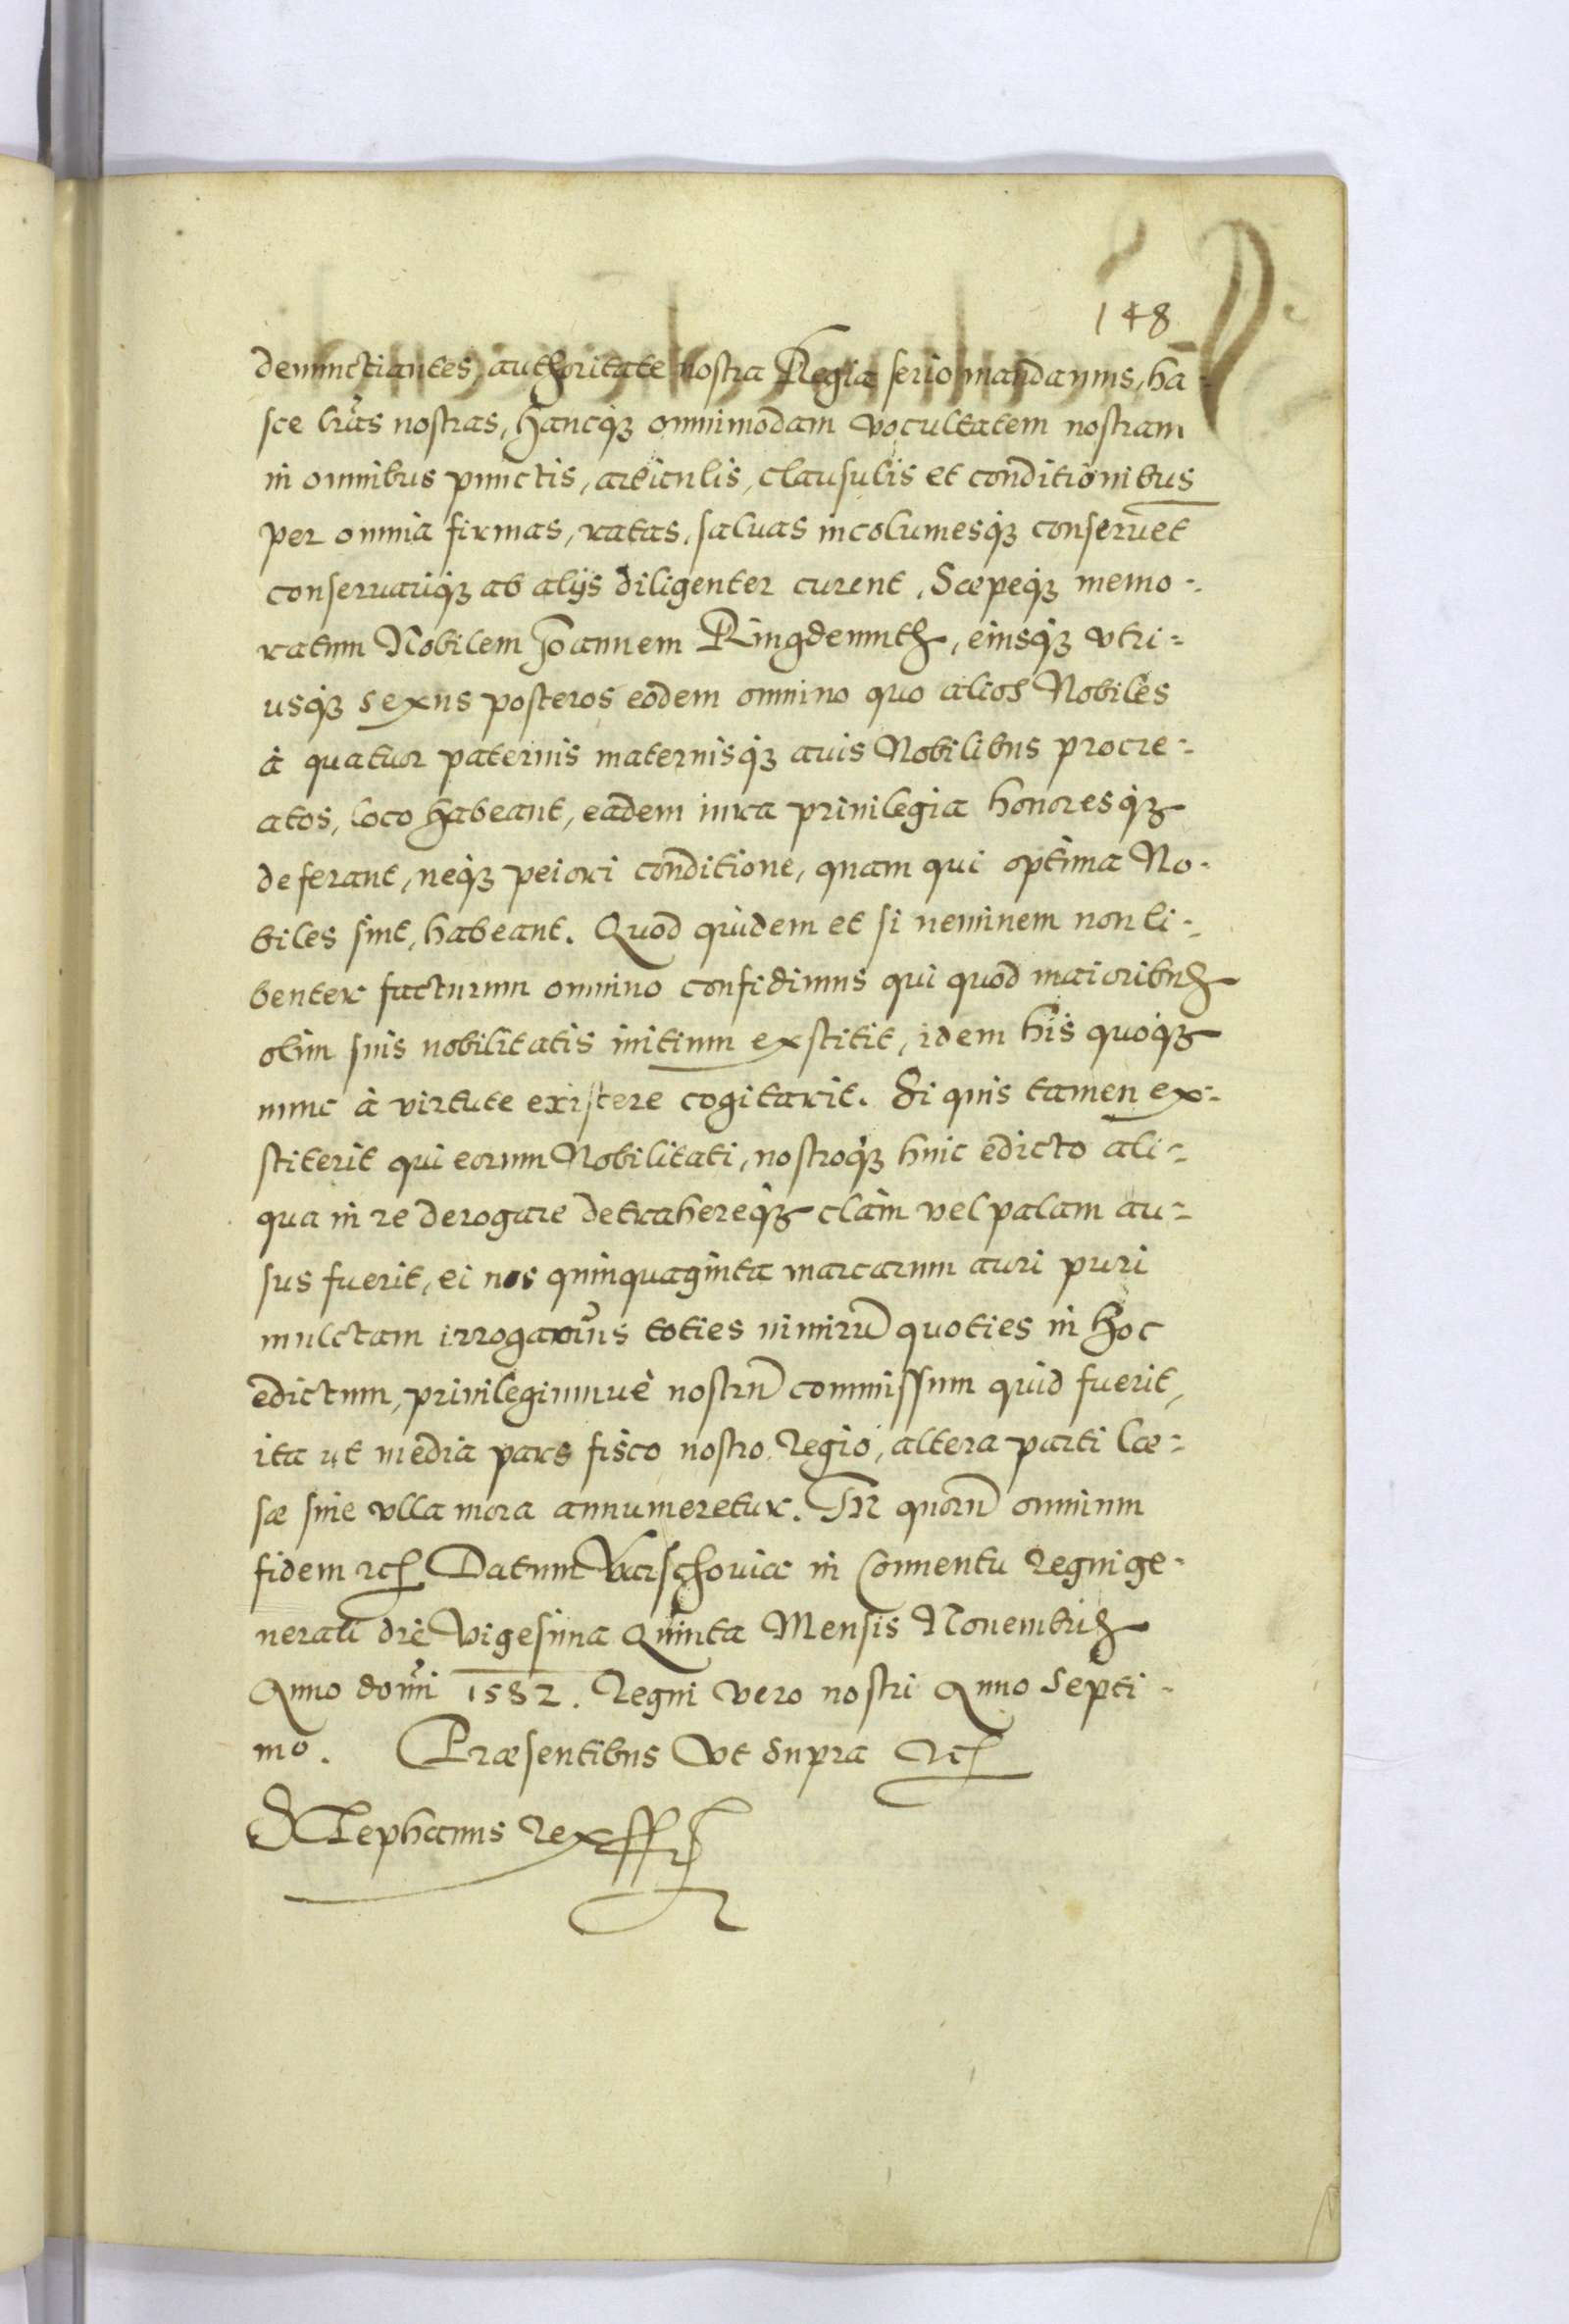 148
denunctiantes, authoritate nostra Regia serio mandamus, ha-
sce lr̃as nostras, hancq̃ꝫ omnimodam vocultatem nostram
in omnibus punctis, articulis, clausulis et conditionibus
per omnia firmas, ratas, saluas incolumesq̃ꝫ conseruẽt
conseruariq̃ꝫ ab alijs diligenter curent, Sæpeq̃ꝫ memo-
ratum Nobilem Joannem Ringdemuth, eiusq̃ꝫ vtri-
usq̃ꝫ sexus posteros eodem omnino quo alios Nobiles
à quatuor paternis maternisq̃ꝫ auis Nobilibus procre-
atos, loco habeant, eadem iura priuilegia honoresq̃ꝫ
deferant, neq̃ꝫ peiori conditione, quam qui optima No-
biles sint, habeant. Quod quidem et si neminem non li-
benter facturum omnino confidimus qui quod maioribus
olim suis nobilitatis initium exstitit, idem his quoq̃ꝫ
nunc à virtute existere cogitarit. Si quis tamen ex-
stiterit qui eorum Nobilitati, nostroq̃ꝫ huic edicto ali-
qua in re derogare detrahereq̃ꝫ clàm vel palam au-
sus fuerit, ei nos quinquaginta marcarum auri puri
mulctam irrogamus toties nimirũ quoties in hoc
edictum, priuilegiumuè nostrũ commissum quid fuerit,
ita ut media pars fisco nostro regio, altera parti læ-
sæ sine vlla mora annumeretur. In quorũ omnium
fidem ꝛc Datum Varschouiæ in Conuentu regni ge-
nerali die Vigesima Quinta Mensis Nouembris
Anno dom̃i 1582. Regni vero nostri Anno Septi-
mo. Præsentibus Vt Supra ꝛc
Stephanus Rex ssꝛ